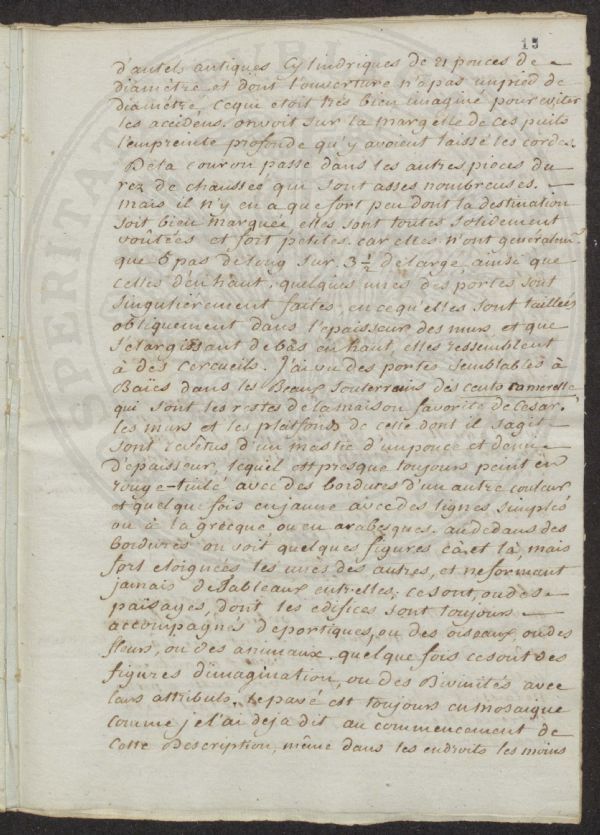 13
d'autels antiques Cylindriques de 21 pouces de
diamétre et dont l'ouverture n'a pas un pied de
diamétre, ce qui etoit trés bien imaginé pour eviter
les accidens. on voit sur la margelle de ces puits
l'empreinte profonde qu'y avoient laissé les cordes.
De la cour on passe dans les autres pieces du
rez de chaussée qui sont asses nombreuses.
mais il n'y en a que fort peu dont la destination
soit bien marquée, elles sont toutes solidement
voûtées et fort petites car elles n'ont généralemt.
que 6 pas de long sur 3 1/2 de large ainsi que
celles d'en haut, quelques unes des portes sont
singuliérement faites, en ce qu'elles sont taillées
obliquement dans l'epaisseur des murs et que
s'elargissant de bas en haut, elles ressemblent
à des cercueils. J'ai vu des portes semblables à
Baïes dans les Beaux souterrains des cento camerelle
qui sont les restes de la maison favorite de Cesar.
les murs et les platfonds de celle dont il s'agit
sont revêtus d'un mastic d'un pouce et demie
d'épaisseur, lequel est presque toujours peint en
rouge-tuilé avec des bordures d'un autre couleur
et quelque fois en jaune avec des lignes simples
ou à la grecque ou en arabesques. au dedans des
bordures on voit quelques figures çà et là, mais
fort eloignées les unes des autres, et ne formant
jamais de Tableaux entr'elles; ce sont, ou des
paisages, dont les edifices sont toujours
accompagnés de portiques, ou des oiseaux, ou des
fleurs, ou des animaux. quelque fois ce sont des
figures d'imagination, ou des Divinités avec
leurs attributs. le pavé est toujours en mosaique
comme je l'ai deja dit au commencement de
cette Description, même dans les endroits les moins